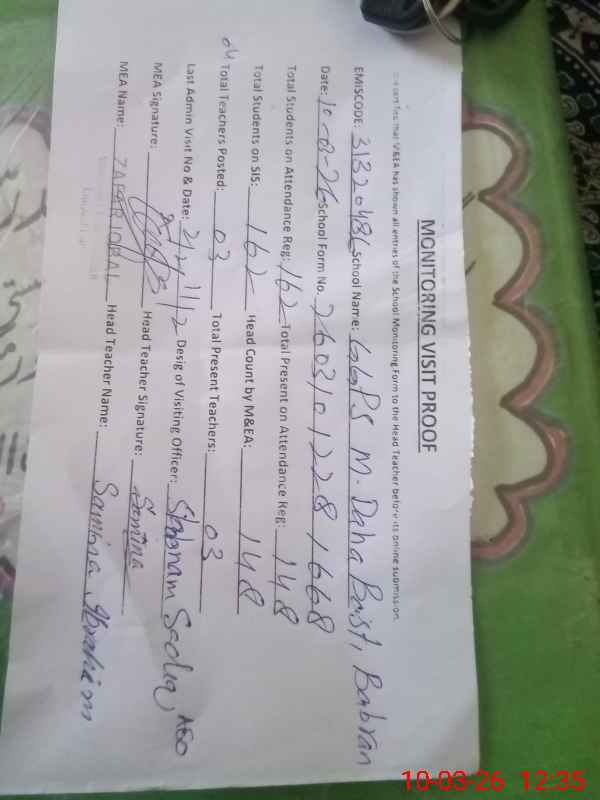 MONITORING VISIT PROOF
It is certifies that M&EA has shown all entries of the School Monitoring Form to the Head Teacher before its online submission
EMISCODE: 31320486 School Name: GGPS M. Daha Baist, Babran
Date: 10-03-26 School Form No. 26031012281668
Total Students on Attendance Reg: 162 Total Present on Attendance Reg: 148
Total Students on SIS: 162 Head Count by M&EA: 148
04 Total Teachers Posted: 03 Total Present Teachers: 03
Last Admin Visit No & Date: 2, 2/12 Desig of Visiting Officer: Shabnam Sadiq, AEO
MEA Signature: Head Teacher Signature: Samina
MEA Name: ZAFAR IQBAL Head Teacher Name: Samina Ibrahim
10-03-26 12:35